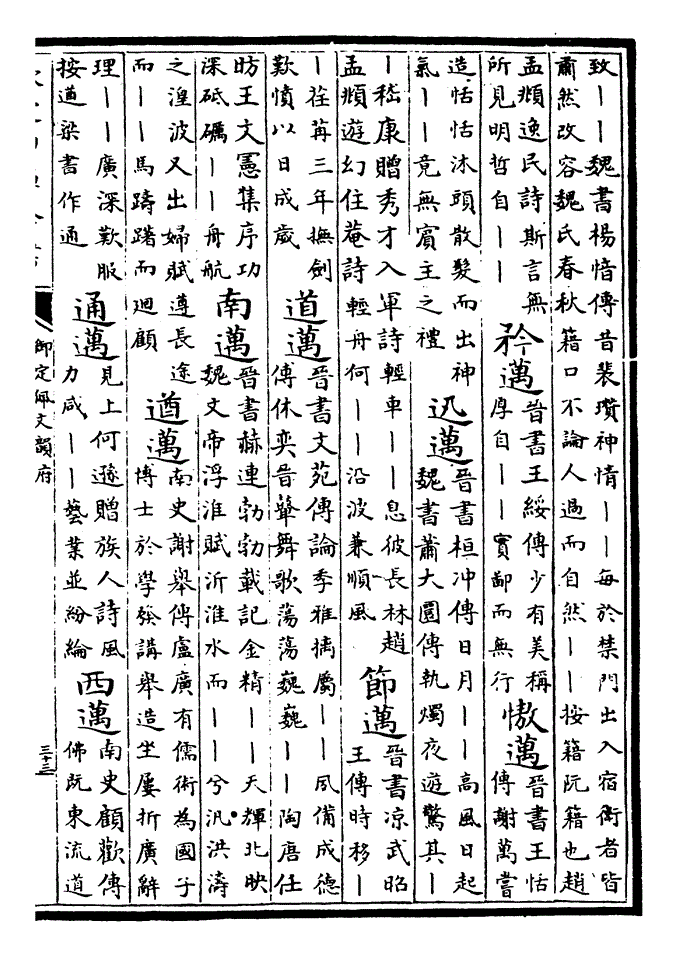 致——魏書楊愔傳昔裴瓚神情——每於禁門出入宿衛者皆
肅然改容魏氏春秋籍口不論人過而自然——按籍阮籍也趙
孟頫逸民詩斯言無
所見明哲自——
矜邁
晉書王綏傳少有美稱
厚自——實鄙而無行
傲邁
晉書王恬
傳謝萬嘗
造恬恬沐頭散髮而出神
氣——竟無賓主之禮
迅邁
晉書桓冲傳日月——高風日起
魏書蕭大圜傳執燭夜遊驚其—
—嵇康贈秀才入軍詩輕車——息彼長林趙
孟頫遊幻住菴詩輕舟何——沿波兼順風
節邁
晉書凉武昭
王傳時移—
—荏苒三年撫劍
歎憤以日成歲
道邁
晉書文苑傳論季雅摛屬——夙備成德
傅休奕晉鼙舞歌蕩蕩巍巍——陶唐仕
昉王文憲集序功
深砥礪——舟航
南邁
晉書赫連勃勃載記金精——天輝北映
魏文帝浮淮賦泝淮水而——兮汎洪濤
之湟波又出婦賦遵長途
而——馬躊躇而迴顧
遒邁
南史謝舉傳盧廣有儒術為國子
博士於學發講舉造坐屢折廣辭
理——廣深歎服
按遒梁書作通
通邁
見上何遜贈族人詩風
力咸——藝業並紛綸
西邁
南史顧歡傳
佛既東流道
御定佩文韻府
三十三